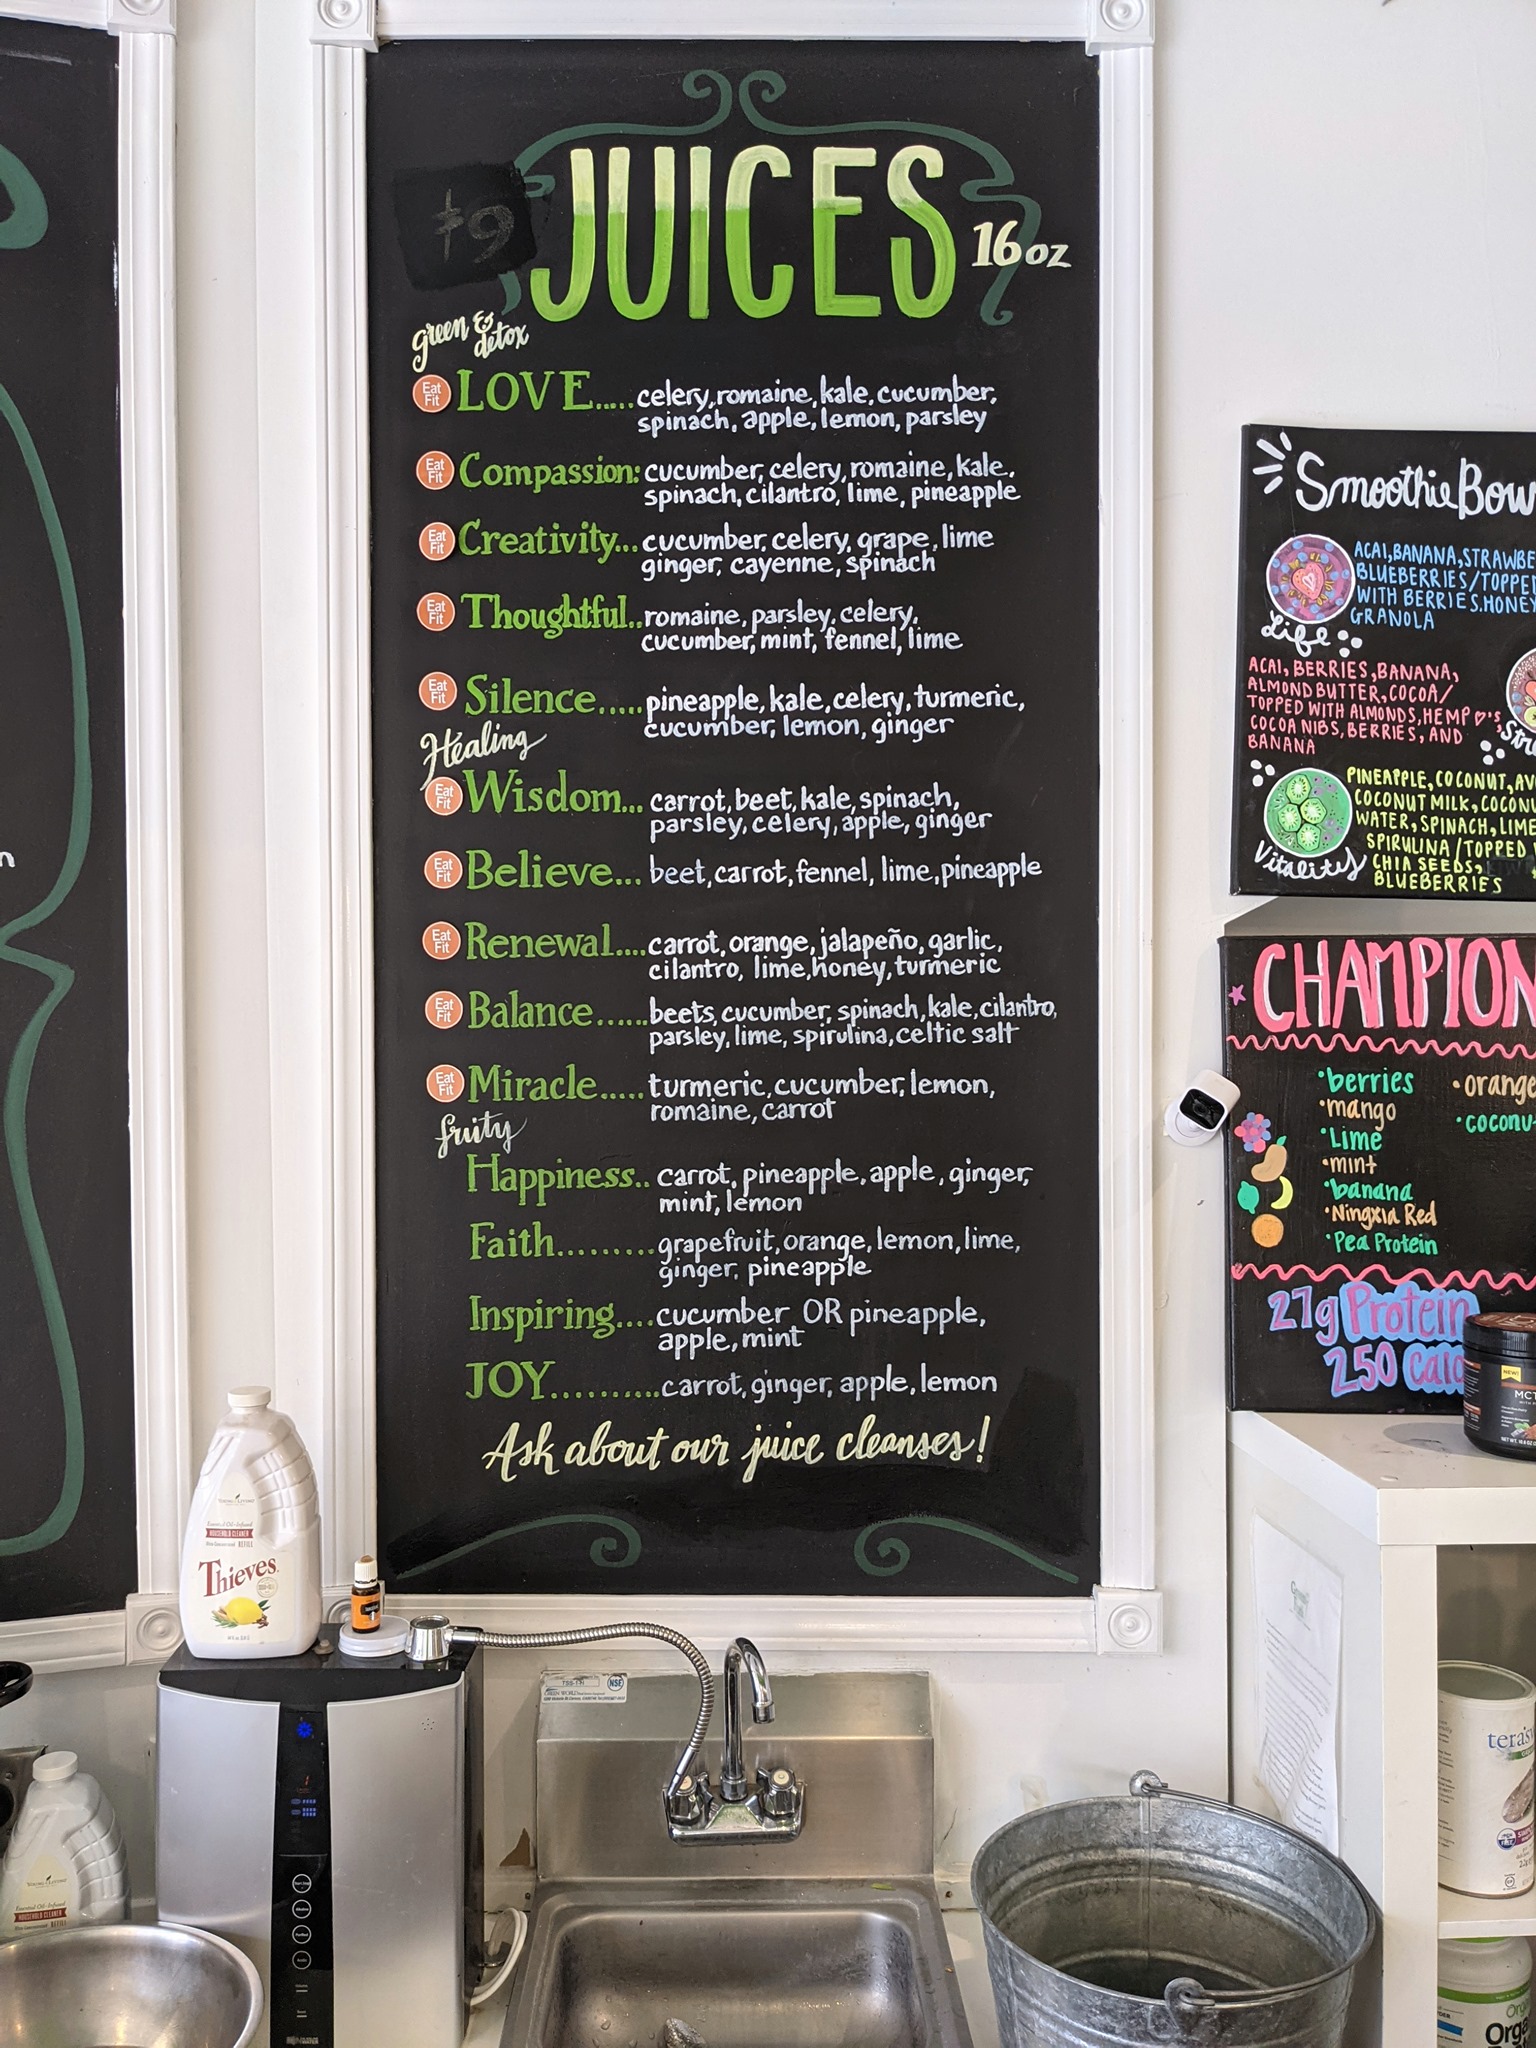 $9
JUICES
16 oz
green &
detox
Eat
Fit
LOVE..... celery, romaine, kale, cucumber,
spinach, apple, lemon, parsley
Eat
Fit
Compassion: cucumber, celery, romaine, kale,
spinach, cilantro, lime, pineapple
Eat
Fit
Creativity... cucumber, celery, grape, lime
ginger, cayenne, spinach
Eat
Fit
Thoughtful.. romaine, parsley, celery,
cucumber, mint, fennel, lime
Eat
Fit
Silence..... pineapple, kale, celery, turmeric,
cucumber, lemon, ginger
Healing
Eat
Fit
Wisdom... carrot, beet, kale, spinach,
parsley, celery, apple, ginger
Eat
Fit
Believe... beet, carrot, fennel, lime, pineapple
Eat
Fit
Renewal.... carrot, orange, jalapeño, garlic,
cilantro, lime, honey, turmeric
Eat
Fit
Balance...... beets, cucumber, spinach, kale, cilantro,
parsley, lime, spirulina, celtic salt
Eat
Fit
Miracle..... turmeric, cucumber, lemon,
romaine, carrot
fruity
Happiness.. carrot, pineapple, apple, ginger,
mint, lemon
Faith......... grapefruit, orange, lemon, lime,
ginger, pineapple
Inspiring.... cucumber OR pineapple,
apple, mint
JOY.......... carrot, ginger, apple, lemon
Ask about our juice cleanses!
Smoothie Bow
ACAI, BANANA, STRAWBE
BLUEBERRIES/TOPPED
WITH BERRIES, HONEY
GRANOLA
Life
ACAI, BERRIES, BANANA,
ALMOND BUTTER, COCOA/
TOPPED WITH ALMONDS, HEMP ♡'s,
COCOA NIBS, BERRIES, AND
BANANA
Stre
PINEAPPLE, COCONUT, AV
COCONUT MILK, COCONU
WATER, SPINACH, LIME
SPIRULINA/TOPPED
CHIA SEEDS,
BLUEBERRIES
Vitality
CHAMPION
•berries
•mango
•Lime
•mint
•banana
•Ningxia Red
•Pea Protein
•orange
•coconu
27g Protein
250 Calo
NEW!
MCT
YOUNG LIVING
Essential Oil-Infused
HOUSEHOLD CLEANER
REFILL
Thieves
TSS-1-H
GREEN WORLD
NSF
YOUNG LIVING
Essential Oil-Infused
HOUSEHOLD CLEANER
teras
Orga